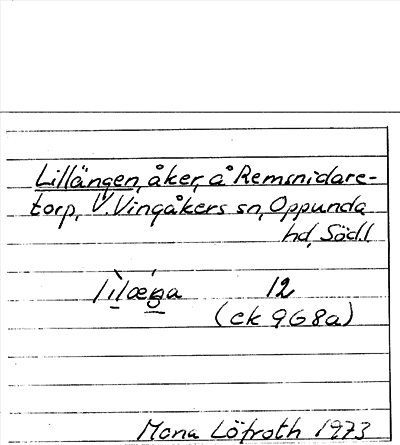 Lillängen, åker, å Remsnidare-
torp, V. Vingåkers sn, Oppunda
hd, Södl.
12
(ek 9G8a)
Mona Löfroth 1973